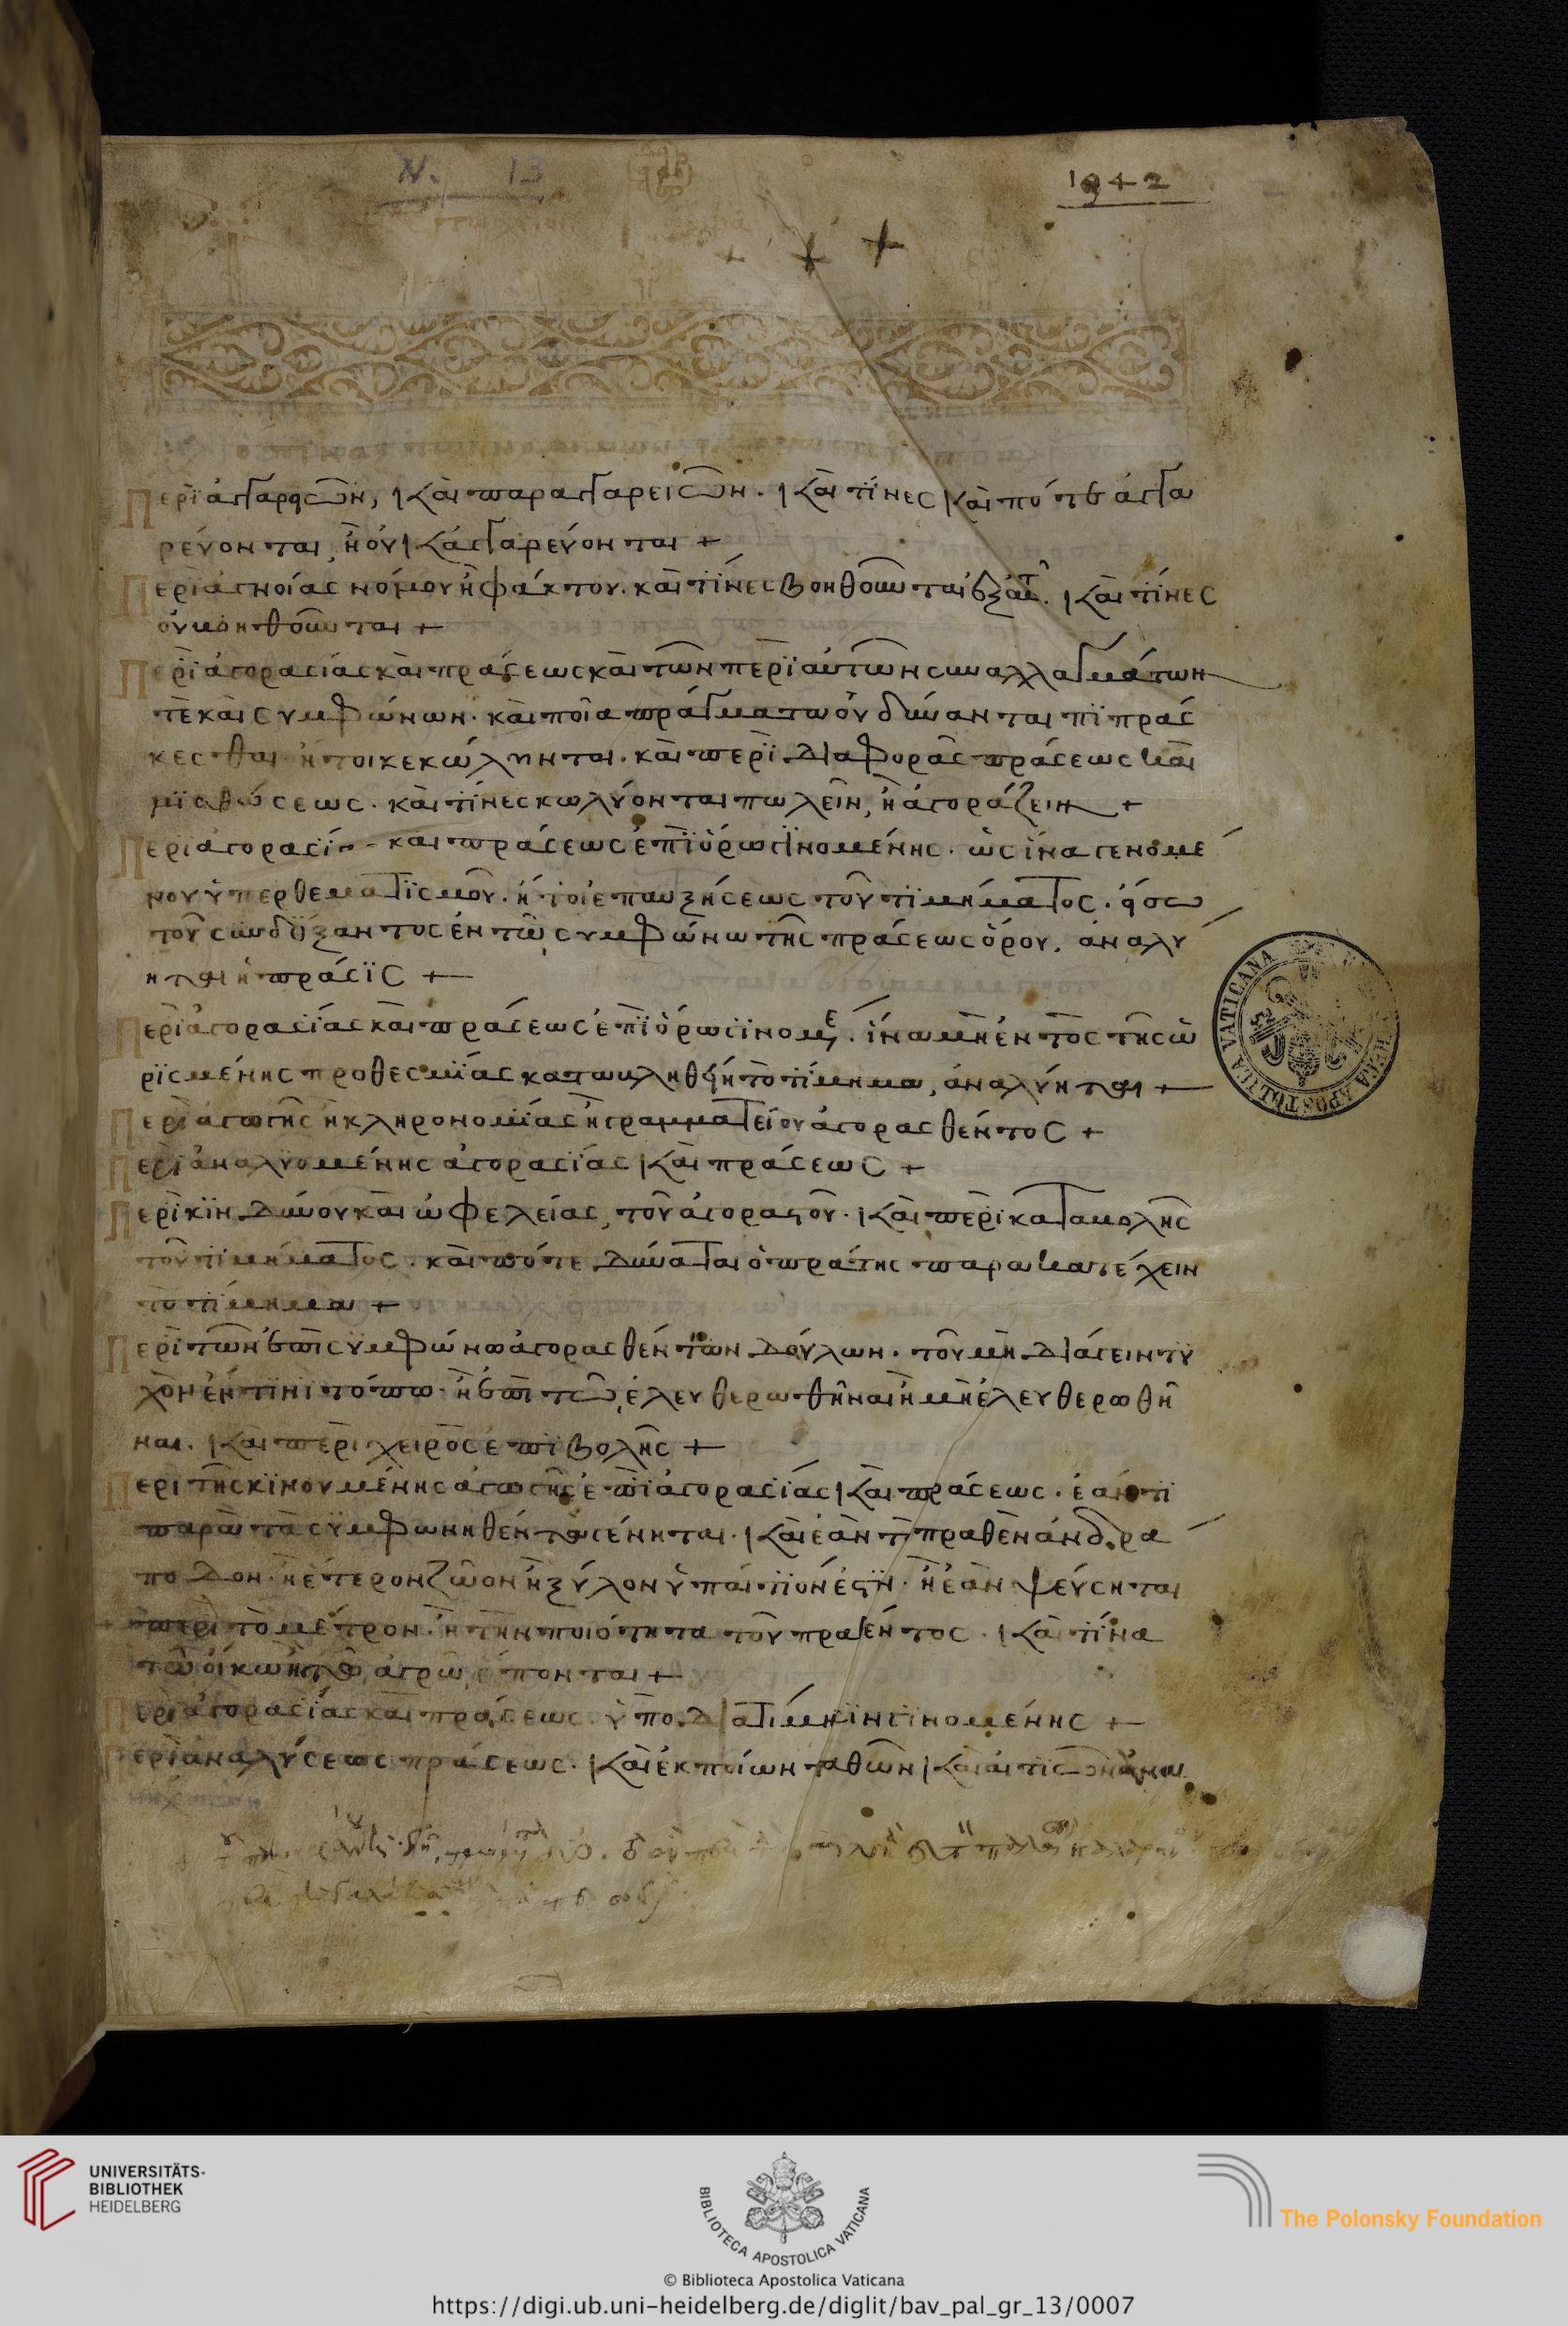 N. 13
1942
Περὶ ἀγγαρειῶν, καὶ παραγγαρειῶν. καὶ τίνες καὶ πότε ἀγγα
ρεύονται, ἢ οὐκ ἀγγαρεύονται +
Περὶ ἀγνοίας νόμου ἢ φάκτου. καὶ τίνες βοηθοῦνται καὶ τίνες
οὐ βοηθοῦνται +
Περὶ ἀγορασίας καὶ πράσεως καὶ τῶν περὶ αὐτῶν συναλλαγμάτων
τὲ καὶ συμφώνων. καὶ ποῖα πράγματα οὐ δύνανται πιπράσ
κεσθαι ἤτοι κεκώλυνται. καὶ περὶ διαφορᾶς πράσεως καὶ
μισθώσεως. καὶ τίνες κωλύονται πωλεῖν, ἢ ἀγοράζειν +
Περὶ ἀγορασίας καὶ πράσεως ἐπὶ ὅρω γινομένης. ὡς ἵνα γενομέ
νου ὑπερθεματισμοῦ. ἤτοι ἐπαυξήσεως τοῦ τιμήματος. εἴσω
τοῦ συνδόξαντος ἐν τῶ συμφώνω τῆς πράσεως ὅρου, ἀναλύ
ηται ἡ πράσις +
Περὶ ἀγορασίας καὶ πράσεως ἐπὶ ὅρω γινομε. ἵνα μὴ ἐντὸς τῆς ὡ
ρισμένης προθεσμίας καταβληθείη τὸ τίμημα, ἀναλύηται +
Περὶ ἀγωγῆς ἢ κληρονομίας ἢ γραμματείου ἀγορασθέντος +
Περὶ ἀναλυομένης ἀγορασίας καὶ πράσεως +
Περὶ κινδύνου καὶ ὠφελείας, τοῦ ἀγοραστοῦ. καὶ περὶ καταβολῆς
τοῦ τιμήματος. καὶ πότε δύναται ὁ πράτης παρακατέχειν
τὸ τίμημα +
Περὶ τῶν ἐπὶ συμφώνω ἀγορασθέντων δούλων. τοῦ μὴ διάγειν τυ
χὸν ἐν τινὶ τόπω. ἢ ἐπὶ τῶ ἐλευθερωθῆναι ἢ μὴ ἐλευθερωθῆ
ναι. καὶ περὶ χειρὸς ἐπιβολῆς +
Περὶ τῆς κινουμένης ἀγωγῆς ἐπὶ ἀγορασίας καὶ πράσεως. ἐάν τι
παρὰ τὰ συμφωνηθέντα γένηται. καὶ ἐὰν τὸ πραθὲν ἀνδρά
ποδον. ἢ ἕτερον ζῶον ἢ ξύλον ὑπαίτιόν ἐστιν. ἢ ἐὰν ψεύσηται
περὶ τὸ μέτρον. ἢ τὴν ποιότητα τοῦ πραθέντος. καὶ τίνα
τῶ οἴκω ἢ τῶ ἀγρῶ, ἕπονται +
Περὶ ἀγορασίας καὶ πράσεως. ὑπο διατίμησιν γινομένης +
Περὶ ἀναλύσεως πράσεως. καὶ ἐκ ποίων παθῶν καὶ αἰτιῶν
BIBLIOTHECA APOSTOLICA VATICANA
UNIVERSITÄTS-
BIBLIOTHEK
HEIDELBERG
BIBLIOTECA APOSTOLICA VATICANA
© Biblioteca Apostolica Vaticana
https://digi.ub.uni-heidelberg.de/diglit/bav_pal_gr_13/0007
The Polonsky Foundation